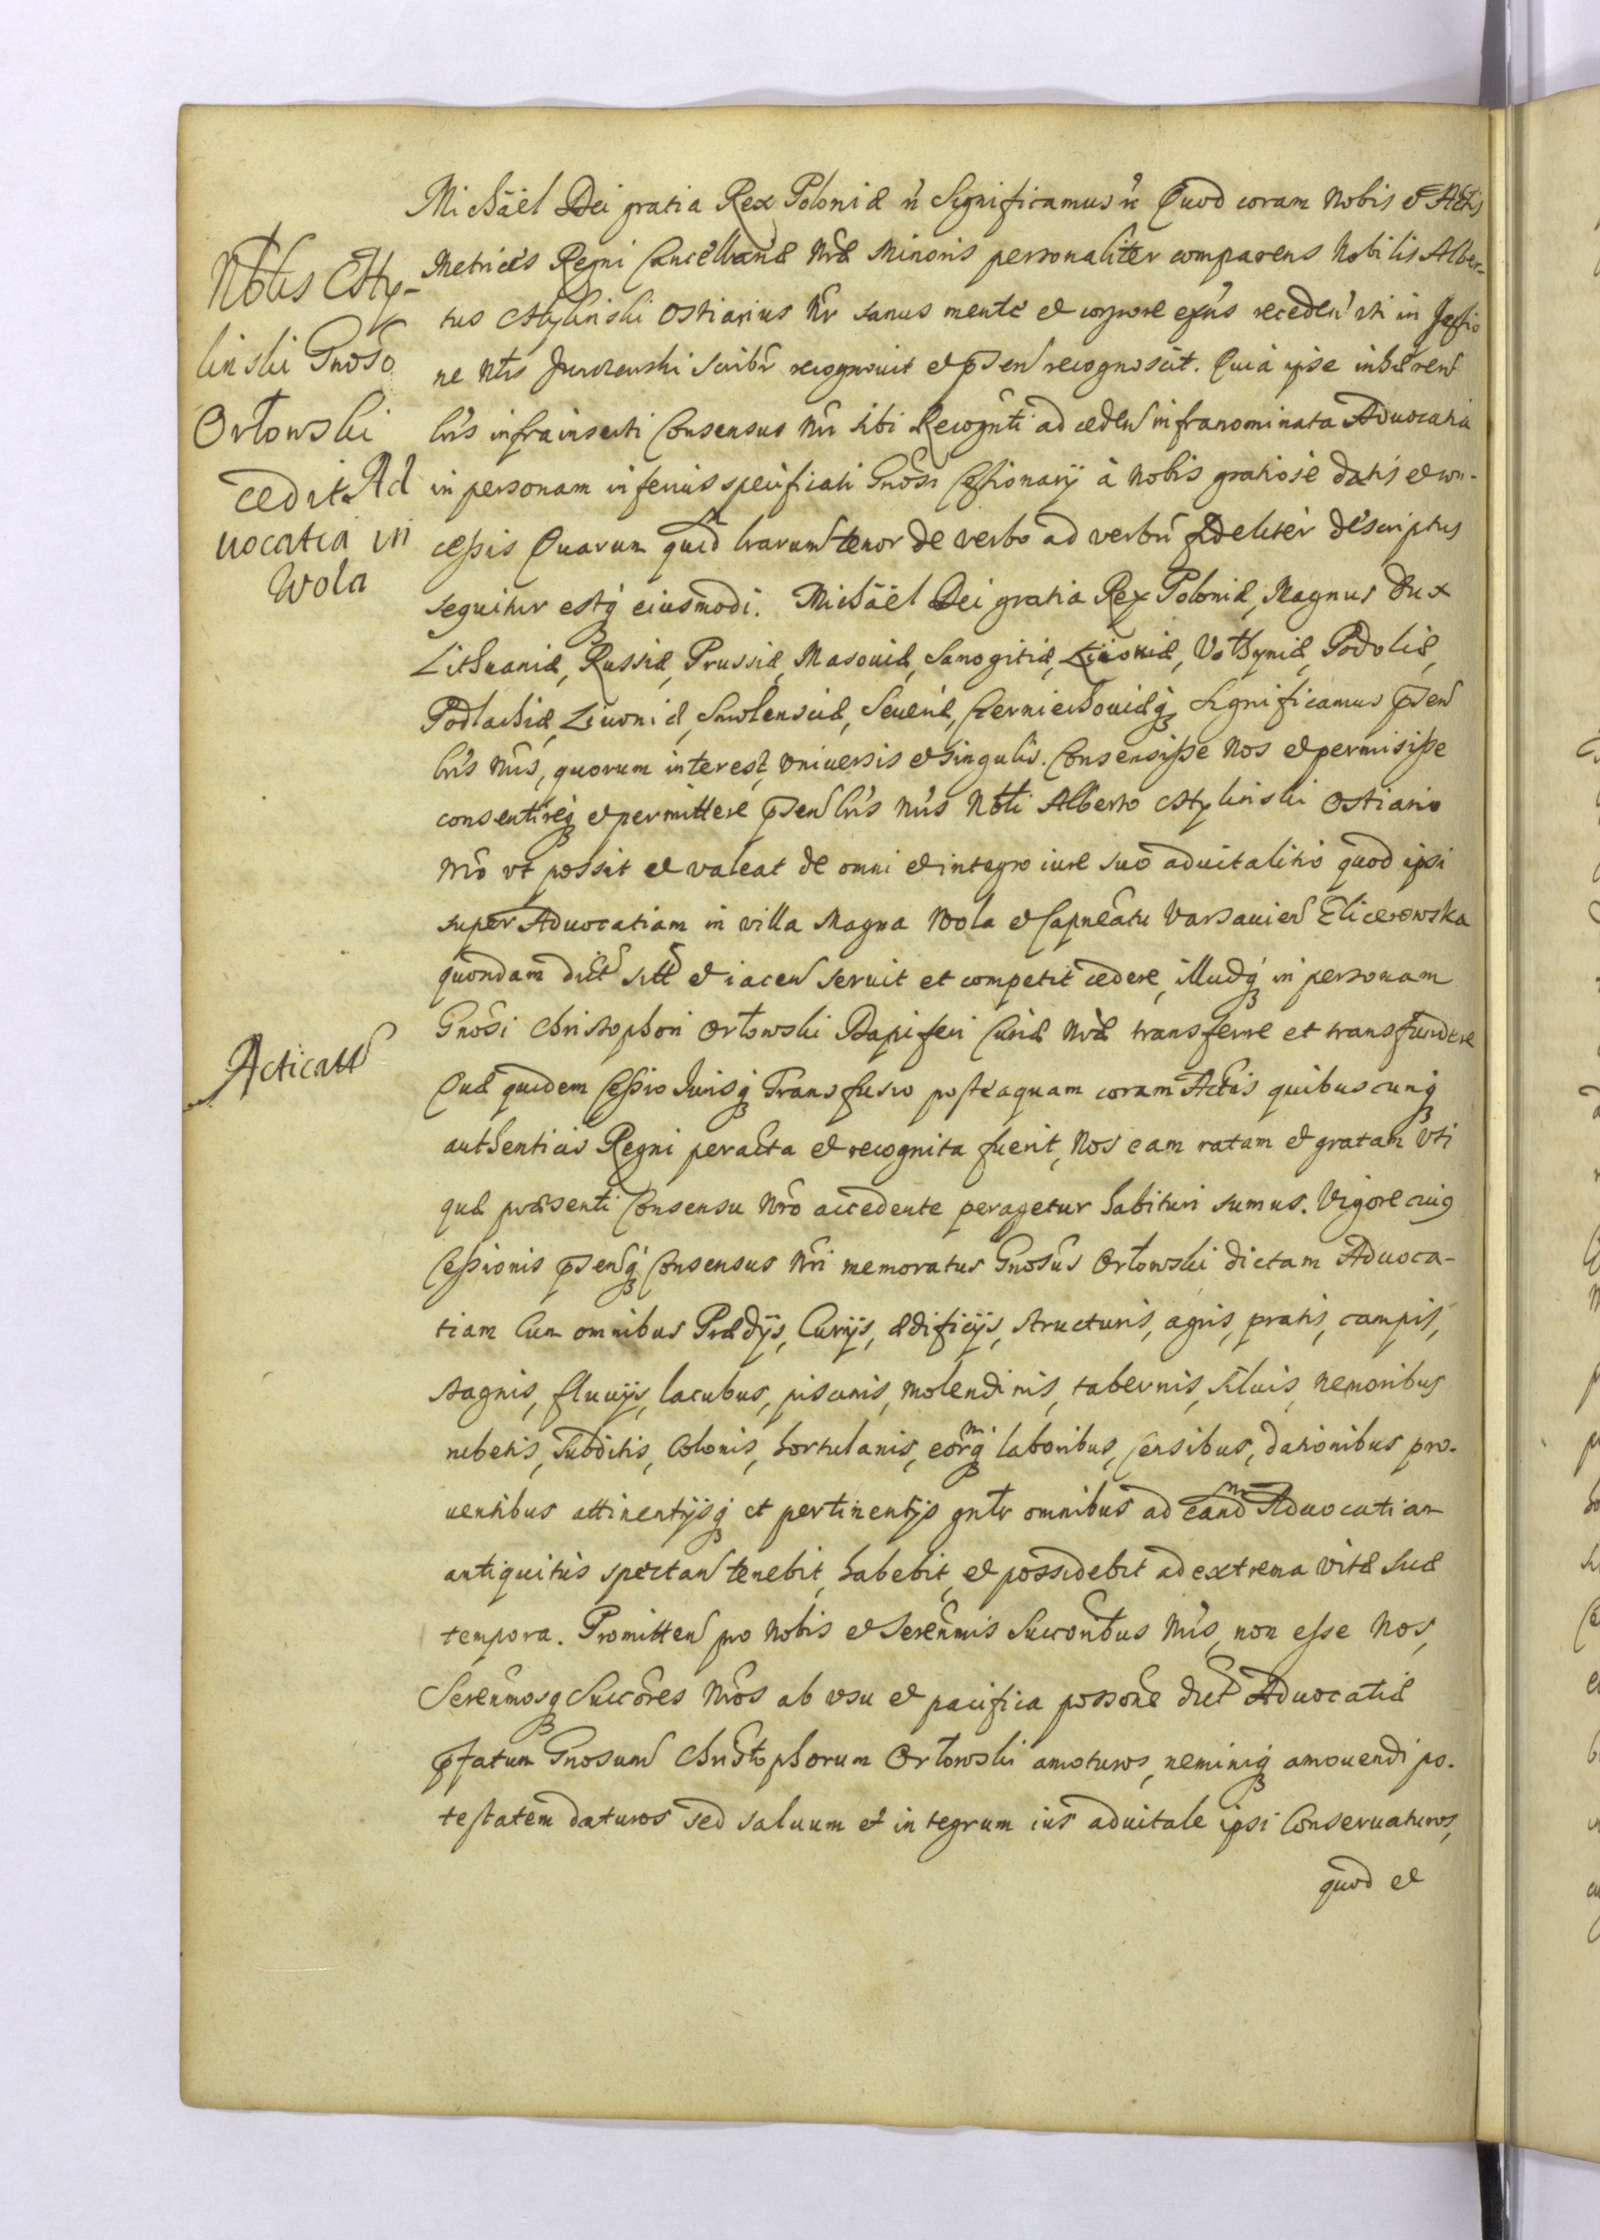 Michäel Dei gratia Rex Poloniæ ñ Significamus ñ Quod coram Nobis et Actis
Nobilis Csty-
Metrices Regni Cancellariæ Nræ Minoris personaliter comparens Nobilis Alber-
tus Cstyliński Ostiarius Nr sanus mente et corpore receden uti in
liński Gnoso
ne recognouit et psen recognoscit. Quia ipse inhæren
Orłowski
lris infrainserti Consensus Nri sibi ad ceden infranominata Aduocatia
cedit Ad
in personam inferius specificati Gnosi Cessionarij à Nobis gratiosè datis et con-
uocatia in
cessis Quarum quid lrarum tenor de verbo ad verbũ fideliter descriptus
Wola
sequitur estq eiusmodi. Michäel Dei gratia Rex Poloniæ, Magnus Dux
Lithuaniæ, Russiæ, Prussiæ, Masouiæ, Samogitiæ, Kiiouiæ, Vołhyniæ, Podoliæ,
Podlachiæ, Liuoniæ, Smolensciæ, Seueriæ, Czerniechouiæq, Significamus psen
lris Nris, quorum interest, vniuersis et singulis. Consensisse Nos et permisisse
consentireq et permittere psen lris Nris Nobli Alberto Cstyliński Ostiario
Nro vt possit et valeat de omni et integro iure suo aduitalitio quod ipsi
super Aduocatiam in villa Magna Wola et Capneatu Varsauien Elicerowska
quondam dict sitt et iacen seruit et competit cedere, illudq in personam
Gnosi Christophori Orłowski Dapiferi Curiæ Nræ transferre et transfundere
Acticatt
Quæ quidem Cessio Jurisq Transfusio posteaquam coram Actis quibuscunq
authenticis Regni peracta et recognita fuerit, Nos eam ratam et gratam vti
quæ præsenti Consensu Nro accedente peragetur habituri sumus. Vigore cuius
Cessionis psenq Consensus Nri memoratus Gnosus Orłowski dictam Aduoca-
tiam Cum omnibus Prædijs, Curijs, ædificijs, structuris, agris, pratis, campis,
stagnis, fluuijs, lacubus, piscinis, molendinis, tabernis, siluis, nemoribus
rubetis, Subditis, Colonis, hortulanis, eormq laboribus, Censibus, dationibus pro-
uentibus attinentijsq et pertinentijs gnlr omnibus ad eandm Aduocatiam
antiquitùs spectan tenebit, habebit, et possidebit ad extrema vitæ suæ
tempora. Promitten pro Nobis et Serenmis Succoribus Nris, non esse Nos,
Serenmosq Succores Nros ab vsu et pacifica possone dict Aduocatiæ
pfatum Gnosum Christophorum Orłowski amoturos, neminiq amouendi po-
testatem daturos sed saluum et integrum ius aduitale ipsi Conseruaturos,
quod et